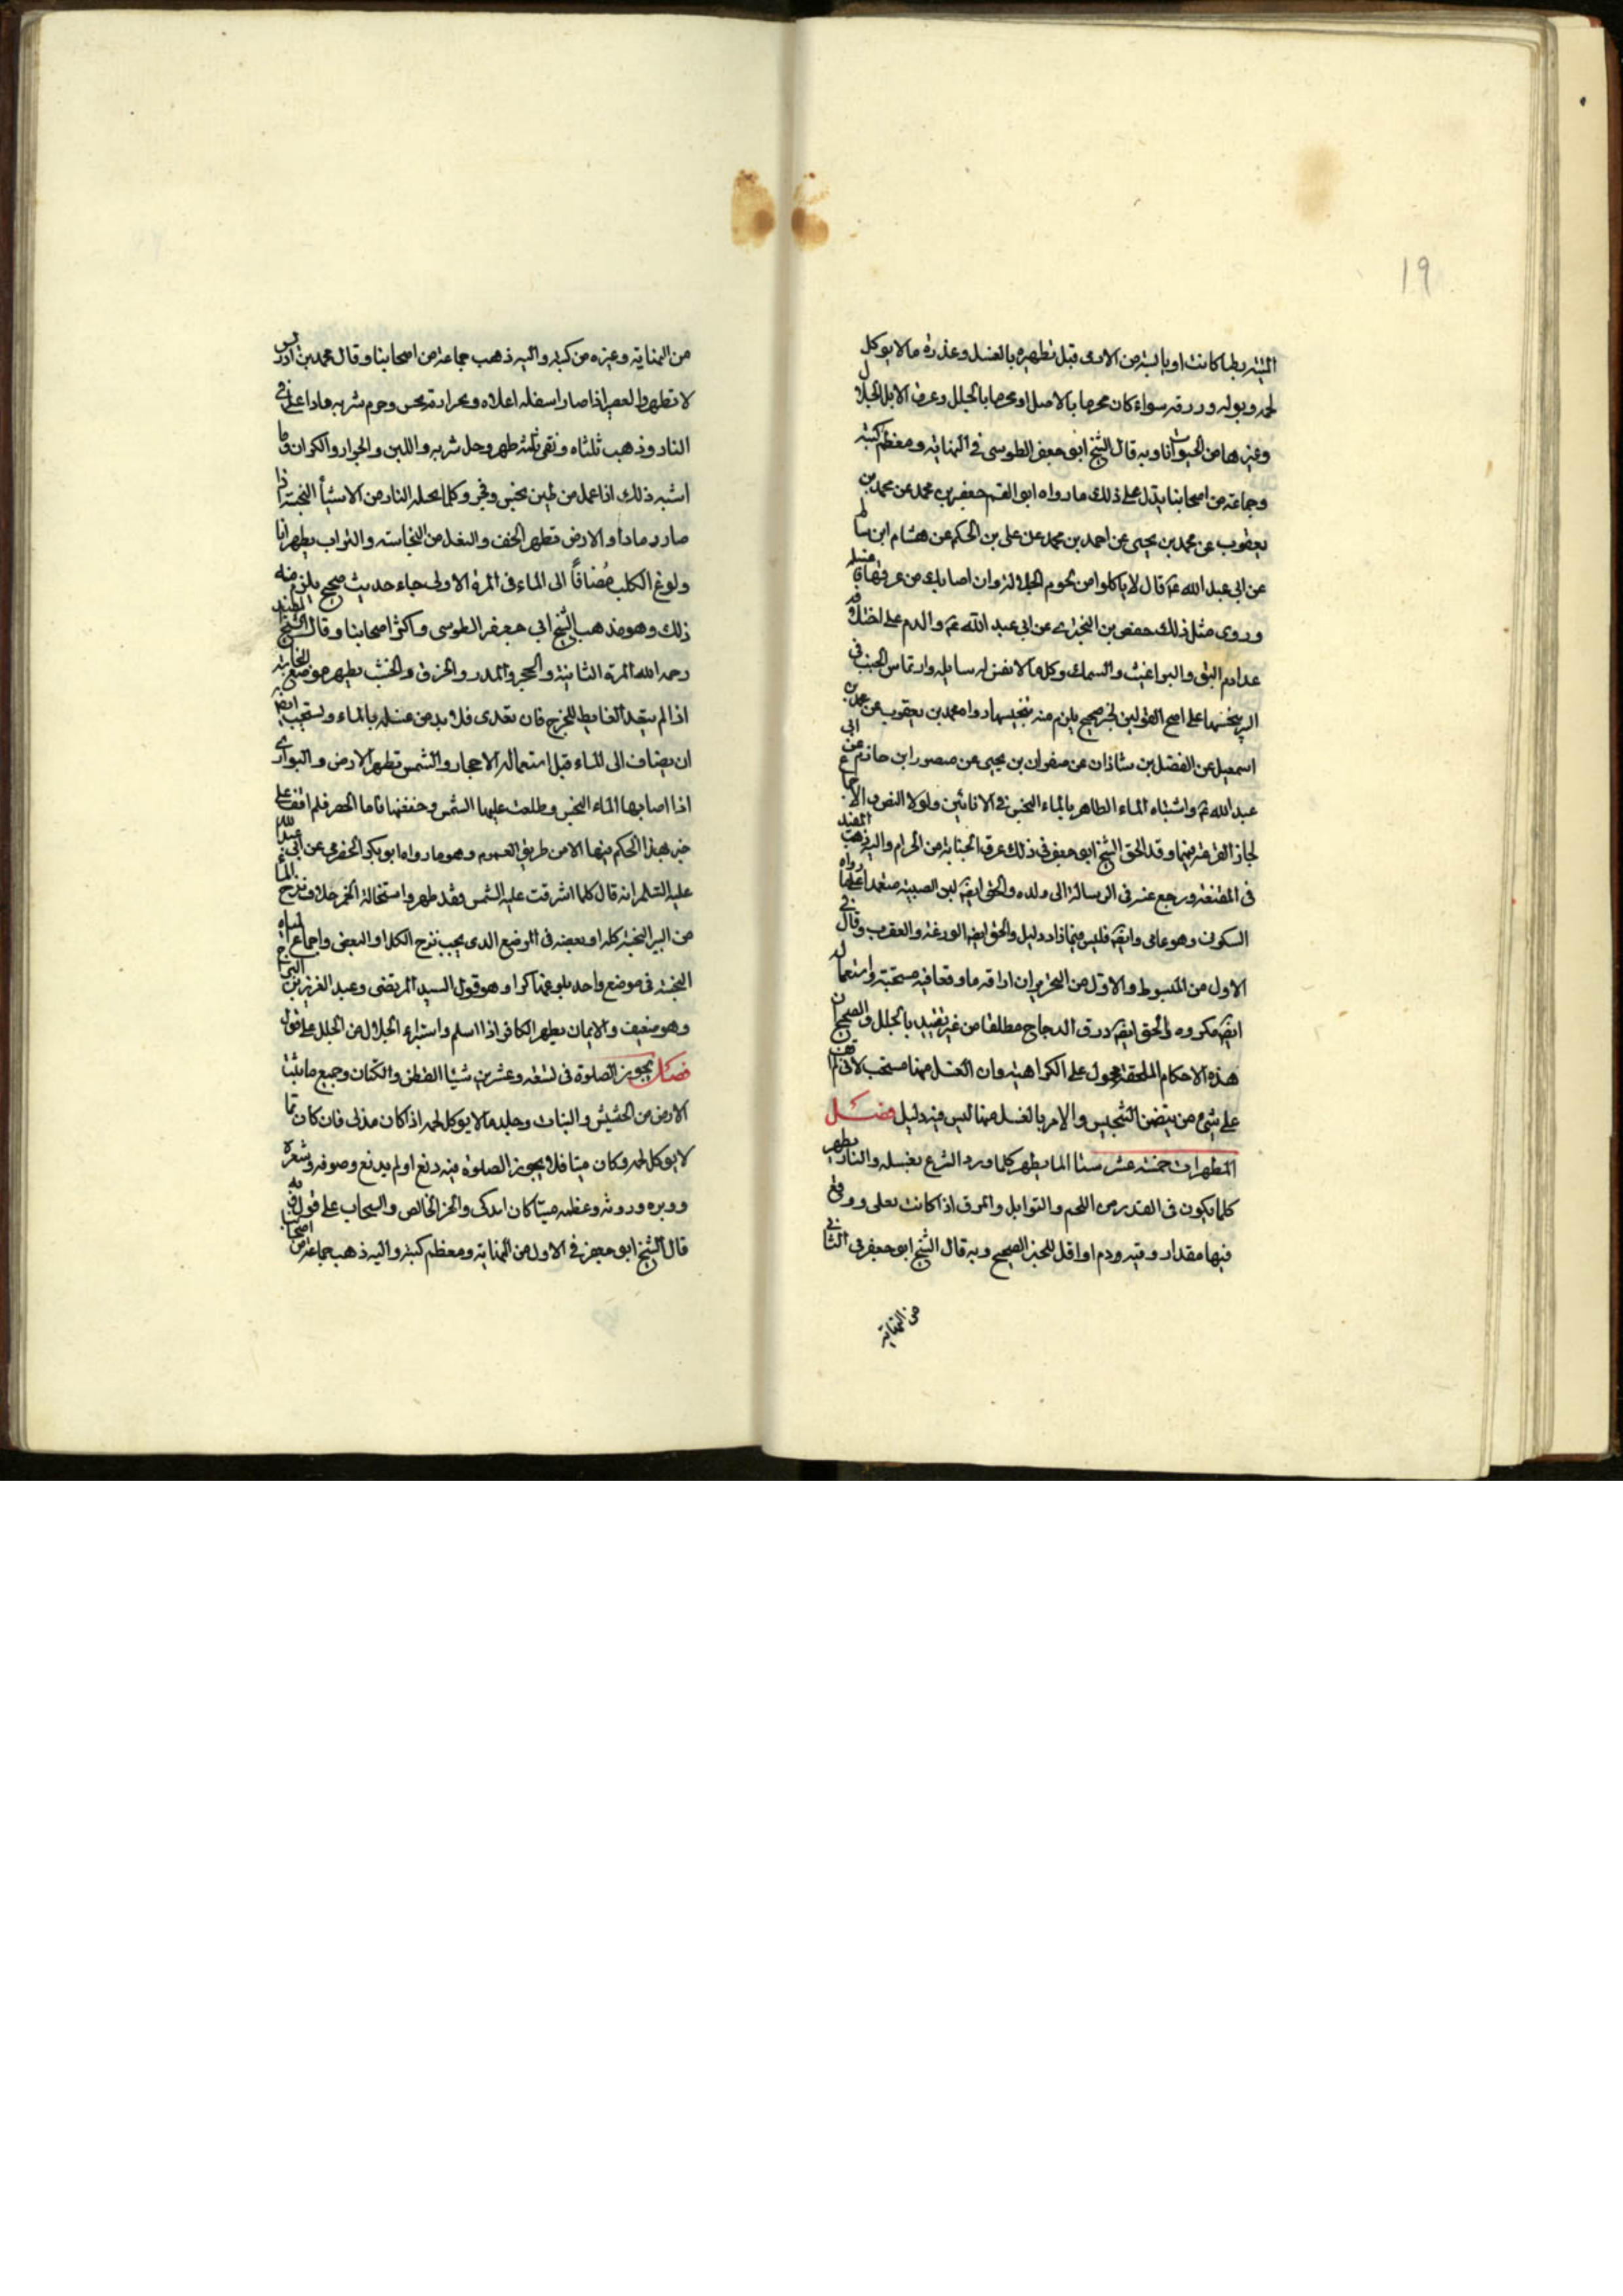 ١٩
الميتة رطبا كانت او يابسة من الادمى قبل تطهيره بالغسل وعذرة ما لا يوكل
لحمه وبوله وررقه سواء كان محرما بالاصل او محرما بالجلل وعرق الابل الجلال
وغيرها من الحيوانات وبه قال الشيخ ابو جعفر الطوسى فى النهاية ومعظم كتبه
وجماعة من اصحابنا يدل على ذلك ما رواه ابو القسم جعفر بن محمد عن محمد بن
يعقوب عن محمد بن يحيى عن احمد بن محمد عن على بن الحكم عن هشام ابن سالم
عن ابى عبد الله ع قال لا ياكلوا من لحوم الجلالة وان اصابك من عرقها فاغسله
وروى مثل ذلك حفص بن البخترى عن ابى عبد الله ع والدم على اختلافه
عدا دم البق والبراغيث والسمك وكلما لا نفس له سايله وارتماس الجنب فى
البير ينجسها على اصح القولين لخبر صحيح يلزم منه تنجيسها رواه محمد بن يعقوب عن محمد بن
اسمعيل عن الفضل بن شاذان عن صفوان بن يحيى عن منصور ابن حازم عن ابى
عبد الله ع واشتباه الماء الطاهر بالماء النجس فى الانائين ولولا النص والاجماع
لجاز القرعة فيها وقد الحق الشيخ ابو جعفر فى ذلك عرق الجنابة من الحرام واليه ذهب المفيد
فى المقنعة ورجع عنه فى الرسالة الى ولده والحق ايضا لبن الصبية معتمدا على ما رواه
السكونى وهو عامى وايضا فليس فيها زاد دليل والحق ايضا الوزغة والعقرب وقال فى
الاول من المبسوط والاول من التحرير ان اراقة ما وقعا فيه مستحبة واستعماله
ايضا مكروه والحق ايضا ذرق الدجاج مطلقا من غير تقييد بالجلل والصحيح ان
هذه الاحكام الملحقة محمول على الكراهية وان الغسل منها مستحب لانى لم اقف
على شىء من يتضمن التنجيس والامر بالغسل منها ليس فيه دليل فصل
المطهرات خمسة عشر شيئا الماء يطهر كلما ورد الشرع بغسله والنار تطهر
كلما يكون فى القدر من اللحم والتوابل والمرق اذا كانت تغلى ووقع
فيها مقدار وقية دم او اقل للخبر الصحيح وبه قال الشيخ ابو جعفر فى الثانى
من النهاية
من النهاية وغيره من كتبه واليه ذهب جماعة من اصحابنا وقال محمد بن ادريس
لا تطهر والعصير اذا صار اسفله اعلاه وبحرارة نجس وحرم شربه واذا غلى فى
النار وذهب ثلثاه وبقى ثلثه طهر وحل شربه واللبن والجرار والكيزان وما
اشبه ذلك اذا عمل من طين نجس وفخر وكلما تحله النار من الاشياء النجسة اذا
صار رمادا والارض تطهر الخف والنعل من النجاسة والتراب يطهر اناء
ولوغ الكلب مضافا الى الماء فى المرة الاولى جاء حديث صحيح يلزم منه
ذلك وهو مذهب الشيخ ابى جعفر الطوسى واكثر اصحابنا وقال الشيخ المفيد
رحمه الله المرة الثانية والحجر والمدر والخرق والخشب يطهر موضع النجاسة
اذا لم يتعد الغايط المخرج فان تعدى فلا بد من غسله بالماء ويستحب ايضا
ان يضاف الى الماء قبل استعماله الاحجار والشمس تطهر الارض والبوارى
اذا اصابها الماء النجس وطلعت عليها الشمس وجففتها فاما الحصر فلم اقف على
خبر بهذا الحكم فيها الا من طريق العموم وهو ما رواه ابو بكر الحضرمى عن ابى عبد الله
عليه السلم انه قال كلما اشرقت عليه الشمس فقد طهر واستحالة الخمر خلا ونزح الماء
من البير النجسة كله او بعضه فى الموضع الذى يجب نزح الكل او البعض واجماع المياه
النجسة فى موضع واحد بلوغها كرا وهو قول السيد المرتضى وعبد العزيز بن البراج
وهو ضعيف والايمان يطهر الكافر اذا اسلم واستبراء الجلال من الجلل على قول
فصل يجوز الصلوة فى تسعة وعشرين شيئا القطن والكتان وجميع ما ينبت
الارض من الحشيش والنبات وجلد ما لا يوكل لحمه اذا كان مذكى فان كان مما
لا يوكل لحمه وكان ميتا فلا يجوز الصلوة فيه دبغ او لم يدبغ وصوفه وشعره
ووبره وروثه وعظمه ميتا كان ام ذكى والخز الخالص والسنجاب على قول وبه
قال الشيخ ابو جعفر فى الاول من النهاية ومعظم كتبه واليه ذهب جماعة من اصحابنا